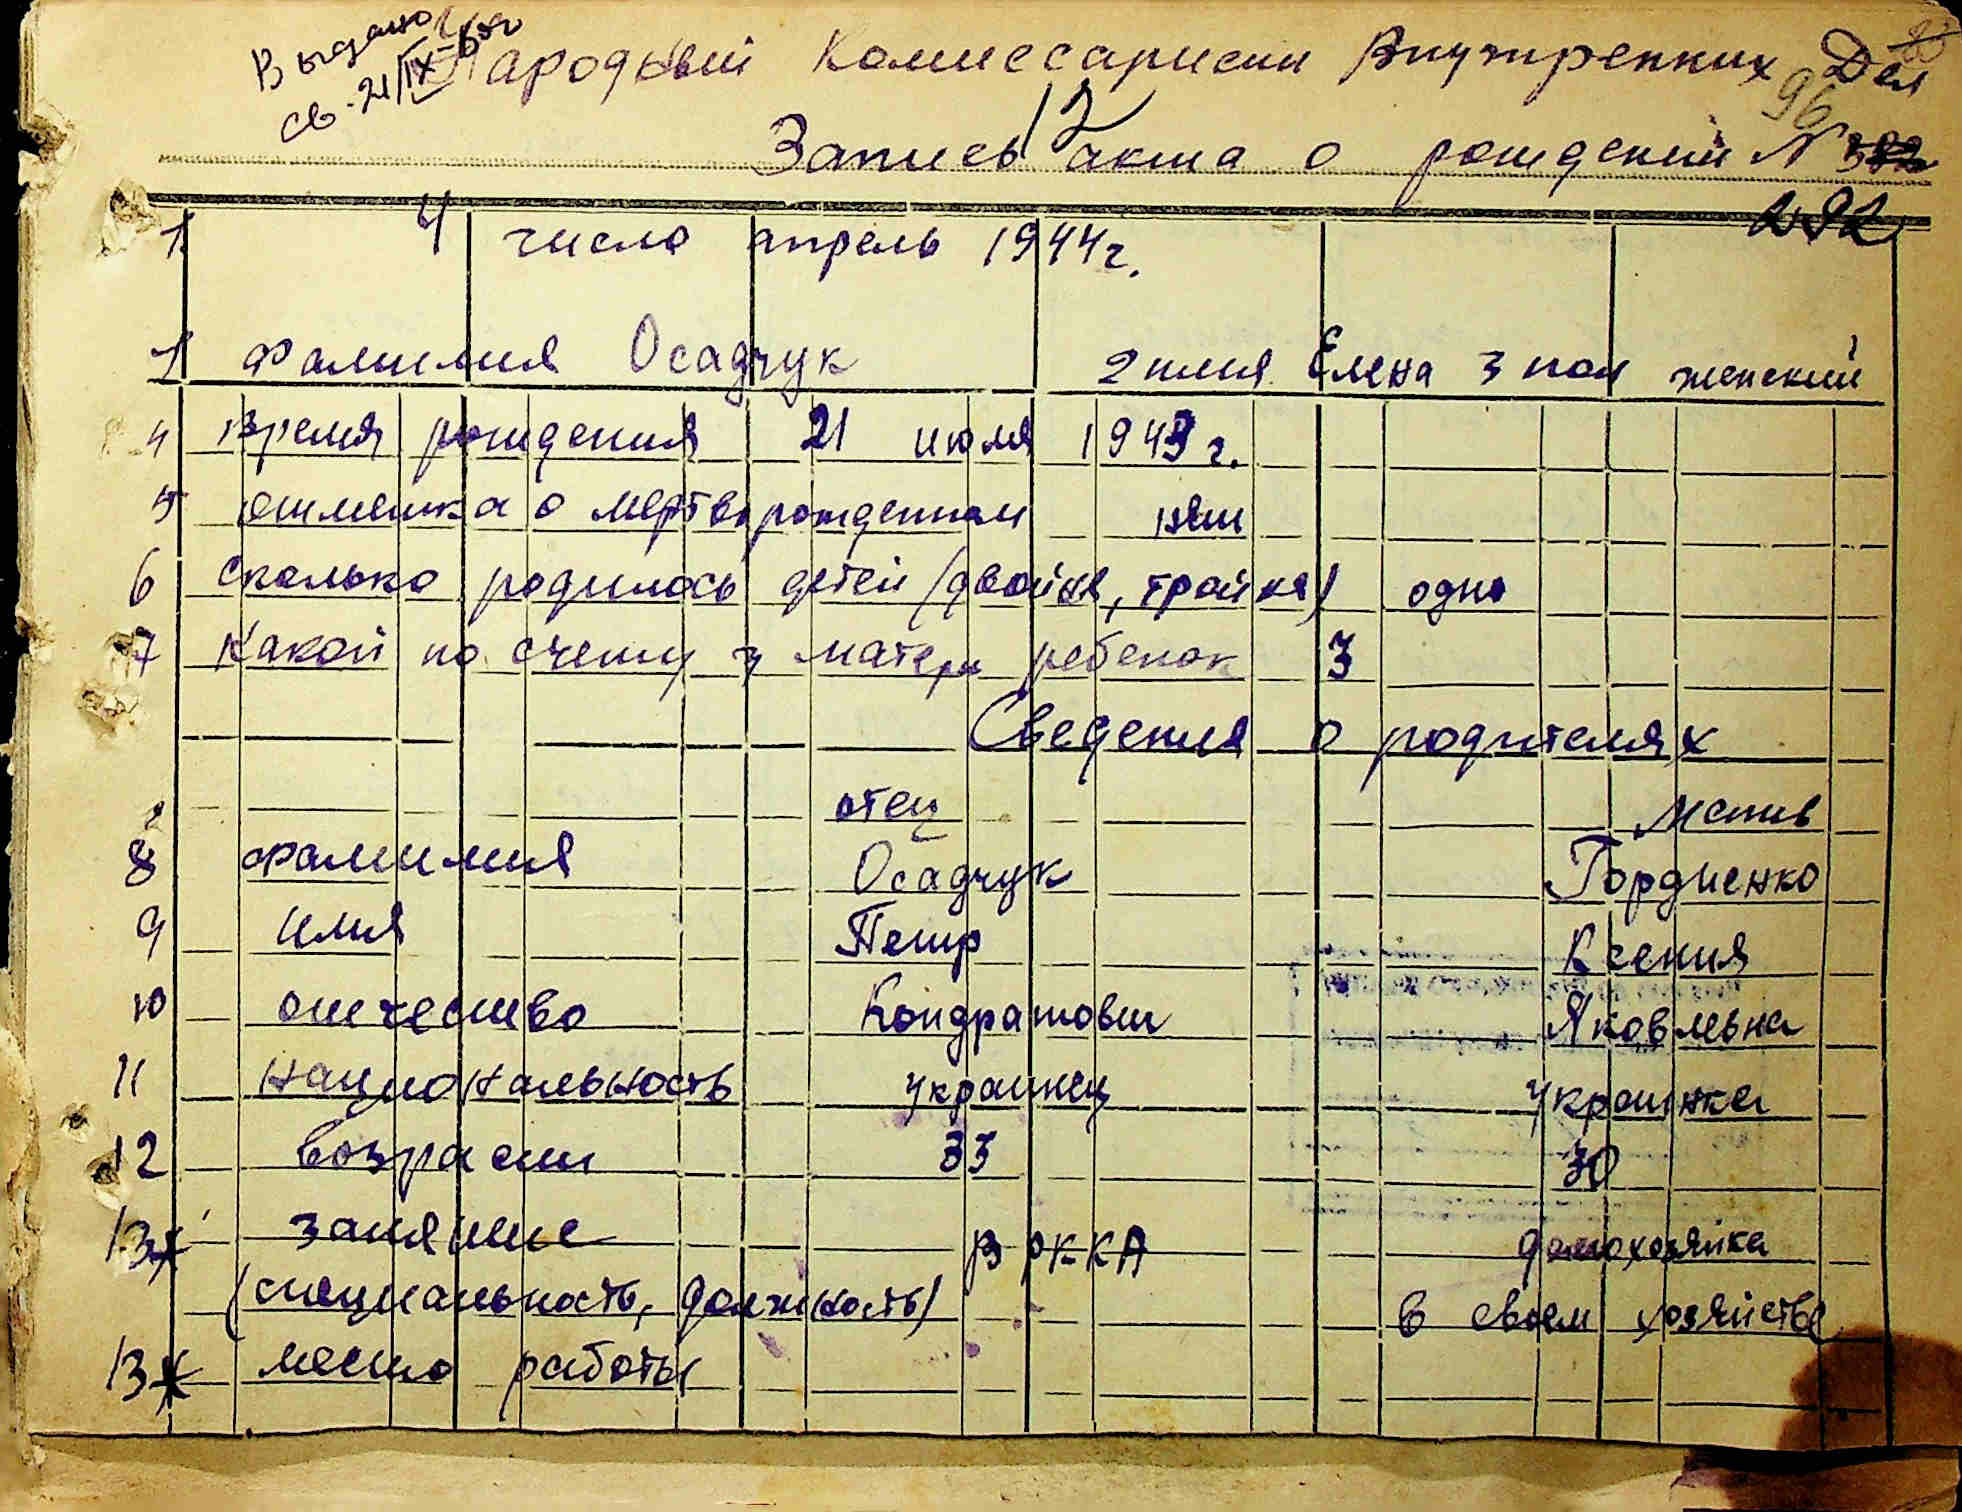 Выдано
св. 21/IX-
Народный Комиссариат Внутренних Дел
96
12
Запись акта о рождении N 382
292
1. 4 число апрель 1944 г.
1 фамилия Осадчук 2 имя Елена 3 пол женский
4 время рождения 21 июля 1943 г.
5 отметка о мертворожденном нет
6 сколько родилось детей (двойня, тройня) одно
7 Какой по счету у матери ребенок 3
Сведения о родителях
отец мать
8 фамилия Осадчук Гордиенко
9 имя Петр Ксения
10 отчество Кондратович Яковлевна
11 национальность украинец украинка
12 возраст 33 30
13 занятие в РККА домохозяйка
(специальность, должность) в своем хозяйстве
13 место работы